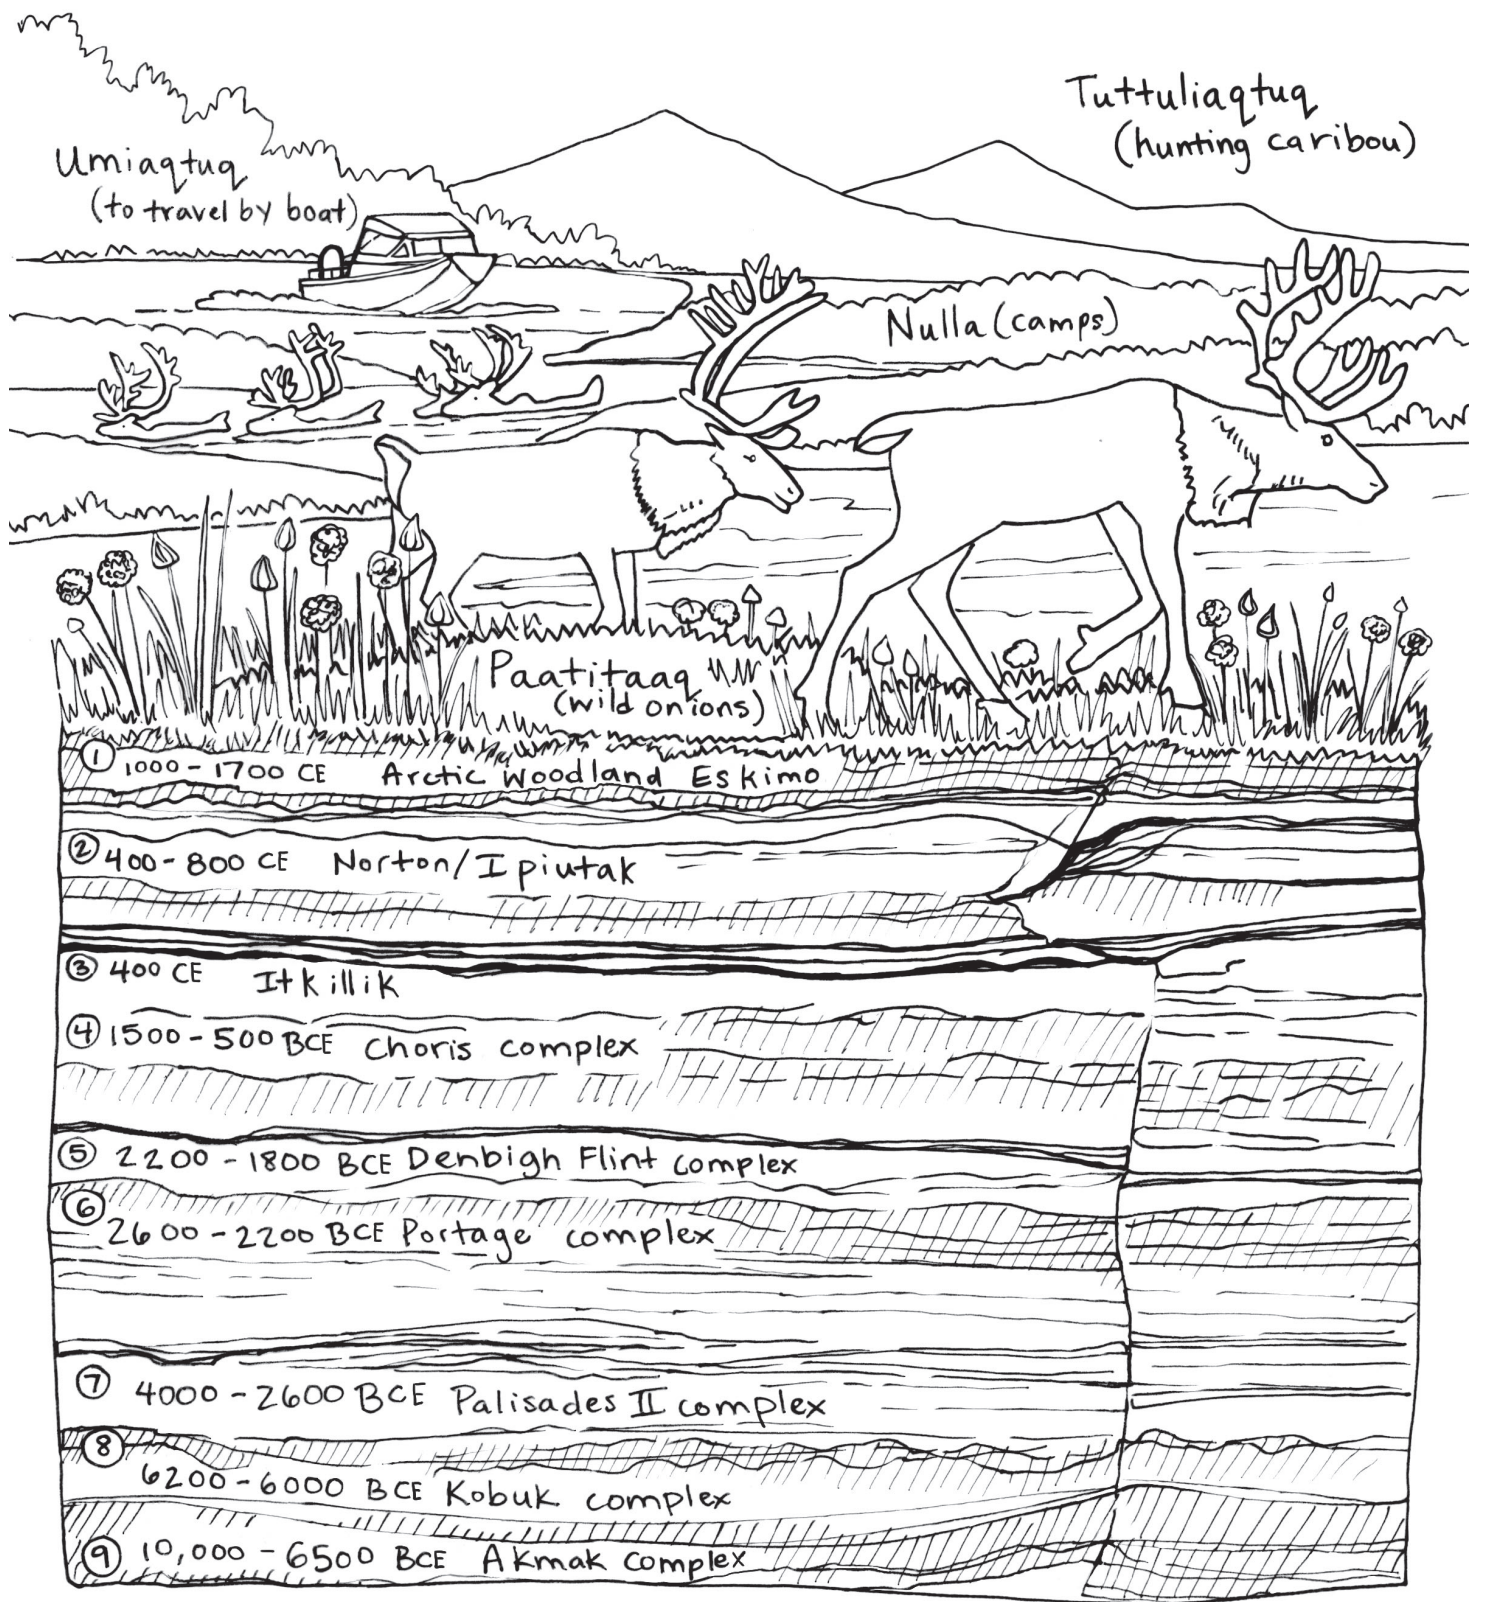 Tuttuliaqtuq
(hunting caribou)
Umiaqtuq
(to travel by boat)
Nulla (camps)
Paatitaaq
(wild onions)
1 1000 - 1700 CE Arctic Woodland Eskimo
2 400 - 800 CE Norton/Ipiutak
3 400 CE Itkillik
4 1500 - 500 BCE Choris complex
5 2200 - 1800 BCE Denbigh Flint complex
6
2600 - 2200 BCE Portage complex
7 4000 - 2600 BCE Palisades II complex
8
6200 - 6000 BCE Kobuk complex
9 10,000 - 6500 BCE Akmak complex